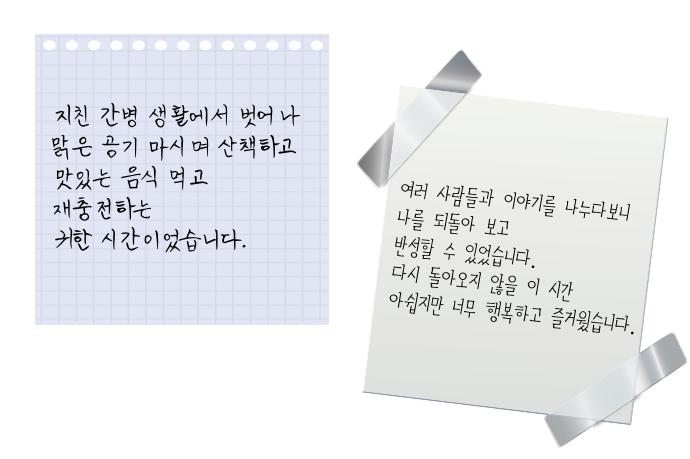 지친 간병 생활에서 벗어나
맑은 공기 마시며 산책하고
맛있는 음식 먹고
재충전하는
귀한 시간이었습니다.
여러 사람들과 이야기를 나누다보니
나를 되돌아 보고
반성할 수 있었습니다.
다시 돌아오지 않을 이 시간
아쉽지만 너무 행복하고 즐거웠습니다.